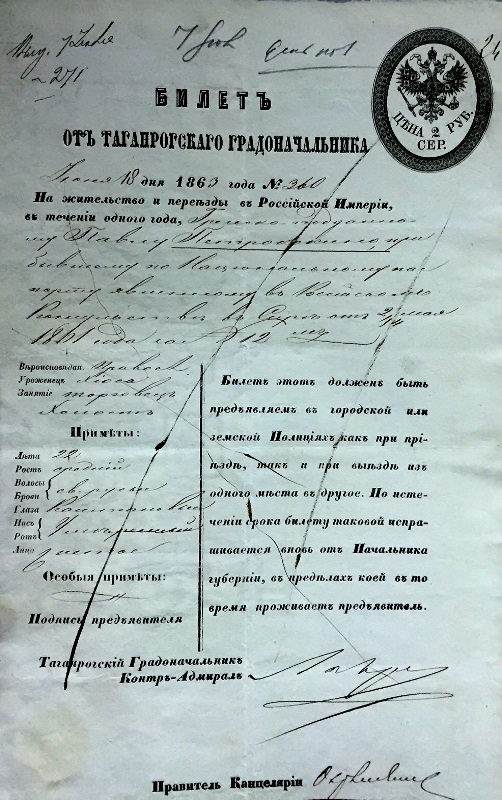 271
24
БИЛЕТЪ
ОТЪ ТАГАНРОГСКАГО ГРАДОНАЧАЛЬНИКА
ЦѢНА 2 РУБ.
СЕР.
Іюня 18 дня 1863 года № 260
На жительство и переѣзды въ Россійской Имперіи,
въ теченіи одного года, Греко подданно-
му Павлу при
бывшему по Національному пас
порту явленному въ Россійскомъ
Консульствѣ въ отъ 2/14 мая
1861 года за № 12
Вѣроисповѣдан. Правосл
Уроженецъ Хіоса
Занятіе торговецъ
Холостъ
Примѣты:
Лѣта 22
Ростъ средній
Волосы
Брови св. русые
Глаза каштановые
Носъ
Ротъ умѣренный
Лицо чистое
Особыя примѣты:
Подпись предъявителя
Билетъ этотъ долженъ быть
предъявляемъ въ городской или
земской Полиціяхъ какъ при прі-
ѣздѣ, такъ и при выѣздѣ изъ
одного мѣста въ другое. По исте-
ченіи срока билету таковой испра-
шивается вновь отъ Начальника
губерніи, въ предѣлахъ коей въ то
время проживаетъ предъявитель.
Таганрогскій Градоначальникъ
Контръ-Адмиралъ
Правитель Канцеляріи